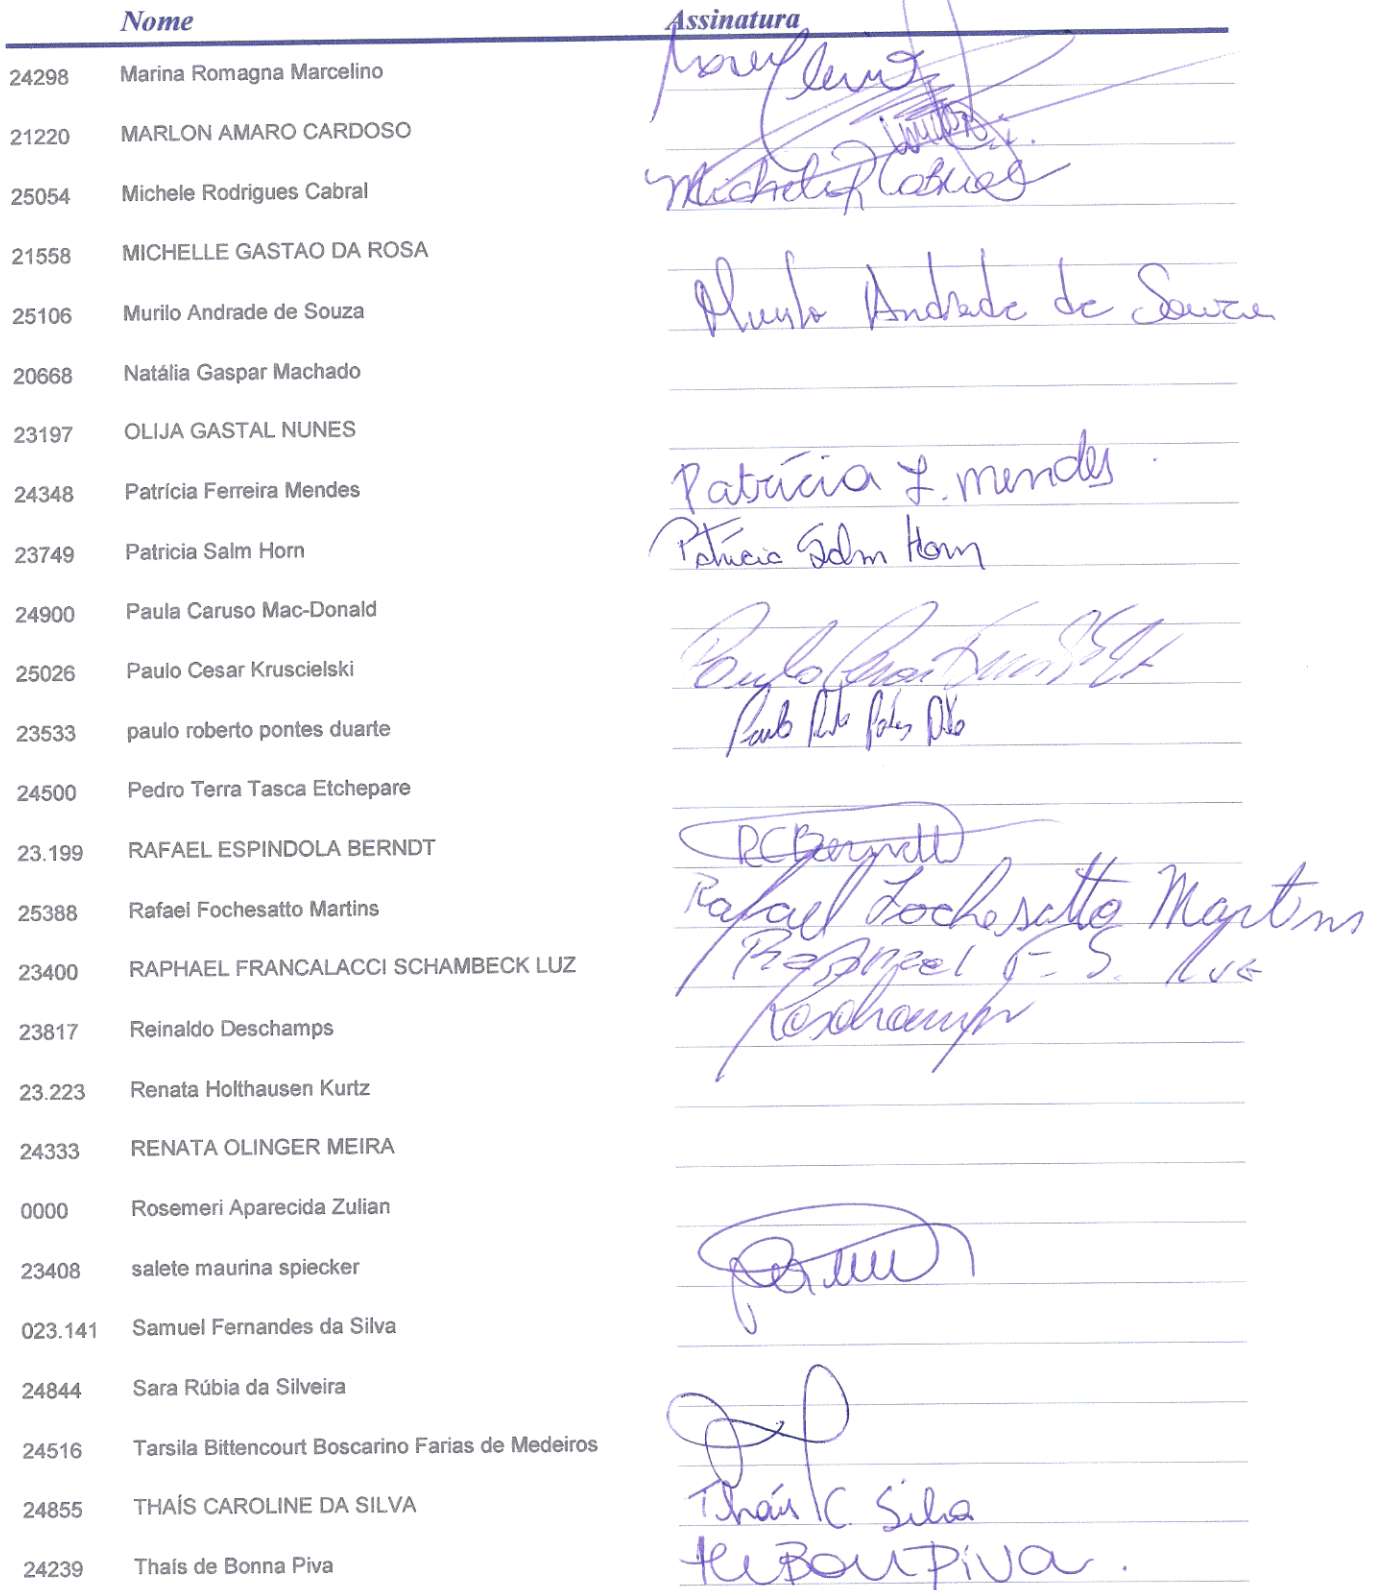 Nome Assinatura
24298 Marina Romagna Marcelino
21220 MARLON AMARO CARDOSO
25054 Michele Rodrigues Cabral Michele R Cabral
21558 MICHELLE GASTAO DA ROSA
25106 Murilo Andrade de Souza Murilo Andrade de Souza
20668 Natália Gaspar Machado
23197 OLIJA GASTAL NUNES
24348 Patrícia Ferreira Mendes Patrícia F. mendes
23749 Patricia Salm Horn Patricia Salm Horn
24900 Paula Caruso Mac-Donald
25026 Paulo Cesar Kruscielski Paulo
23533 paulo roberto pontes duarte Paulo
24500 Pedro Terra Tasca Etchepare
23.199 RAFAEL ESPINDOLA BERNDT Berndt
25388 Rafael Fochesatto Martins Rafael Fochesatto Martins
23400 RAPHAEL FRANCALACCI SCHAMBECK LUZ Raphael F. S. Luz
23817 Reinaldo Deschamps
23.223 Renata Holthausen Kurtz
24333 RENATA OLINGER MEIRA
0000 Rosemeri Aparecida Zulian
23408 salete maurina spiecker
023.141 Samuel Fernandes da Silva
24844 Sara Rúbia da Silveira
24516 Tarsila Bittencourt Boscarino Farias de Medeiros
24855 THAÍS CAROLINE DA SILVA Thaís C. Silva
24239 Thaís de Bonna Piva Piva